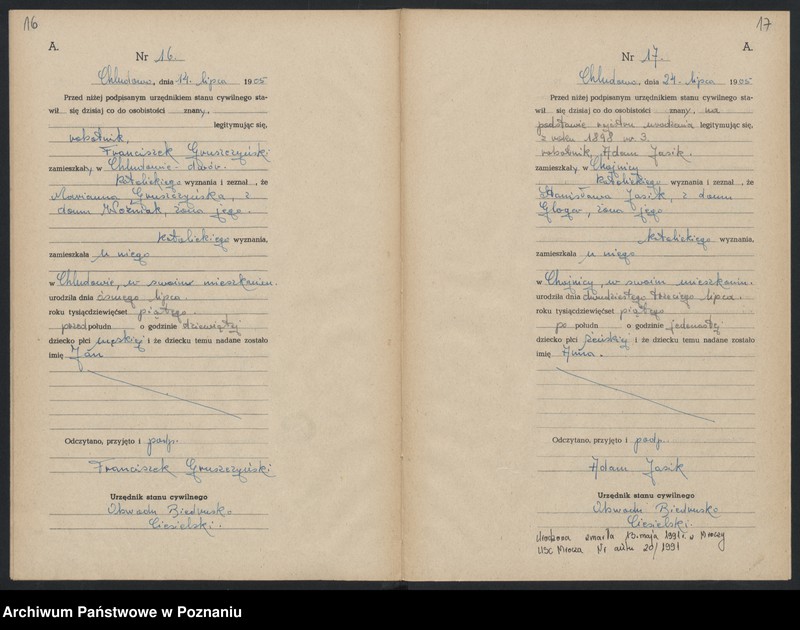 16
A.
Nr 16.
Chludowo, dnia 14. lipca 1905
Przed niżej podpisanym urzędnikiem stanu cywilnego sta-
wił się dzisiaj co do osobistości znany,
legitymując się,
robotnik,
Franciszek Gruszczyński
zamieszkały w Chludowie - dwór.
katolickiego wyznania i zeznał, że
Marianna Gruszczyńska, z
domu Woźniak, żona jego.
katolickiego wyznania,
zamieszkała u niego
w Chludowie, w swoim mieszkaniu.
urodziła dnia ósmego lipca.
roku tysiącdziewięćset piątego
przed połudn o godzinie dziewiątej
dziecko płci męskiej i że dziecku temu nadane zostało
imię Jan
Odczytano, przyjęto i podp.
Franciszek Gruszczyński
Urzędnik stanu cywilnego
Obwodu Biedrusko
Ciesielski.
17
A.
Nr 17.
Chludowo, dnia 24. lipca 1905
Przed niżej podpisanym urzędnikiem stanu cywilnego sta-
wił się dzisiaj co do osobistości znany, na
podstawie rejestru urodzenia legitymując się,
z roku 1898 nr. 3.
robotnik, Adam Jasik.
zamieszkały w Chojnicy
katolickiego wyznania i zeznał, że
Stanisława Jasik, z domu
Gloger, żona jego
katolickiego wyznania,
zamieszkała u niego
w Chojnicy, w swoim mieszkaniu.
urodziła dnia dwudziestego trzeciego lipca.
roku tysiącdziewięćset piątego
po połudn o godzinie jedenastej
dziecko płci żeńskiej i że dziecku temu nadane zostało
imię Anna.
Odczytano, przyjęto i podp.
Adam Jasik
Urzędnik stanu cywilnego
Obwodu Biedrusko
Ciesielski.
Urodzona zmarła 13.maja 1991r. w Mroczy
USC Mrocza Nr aktu 20/1991
Archiwum Państwowe w Poznaniu